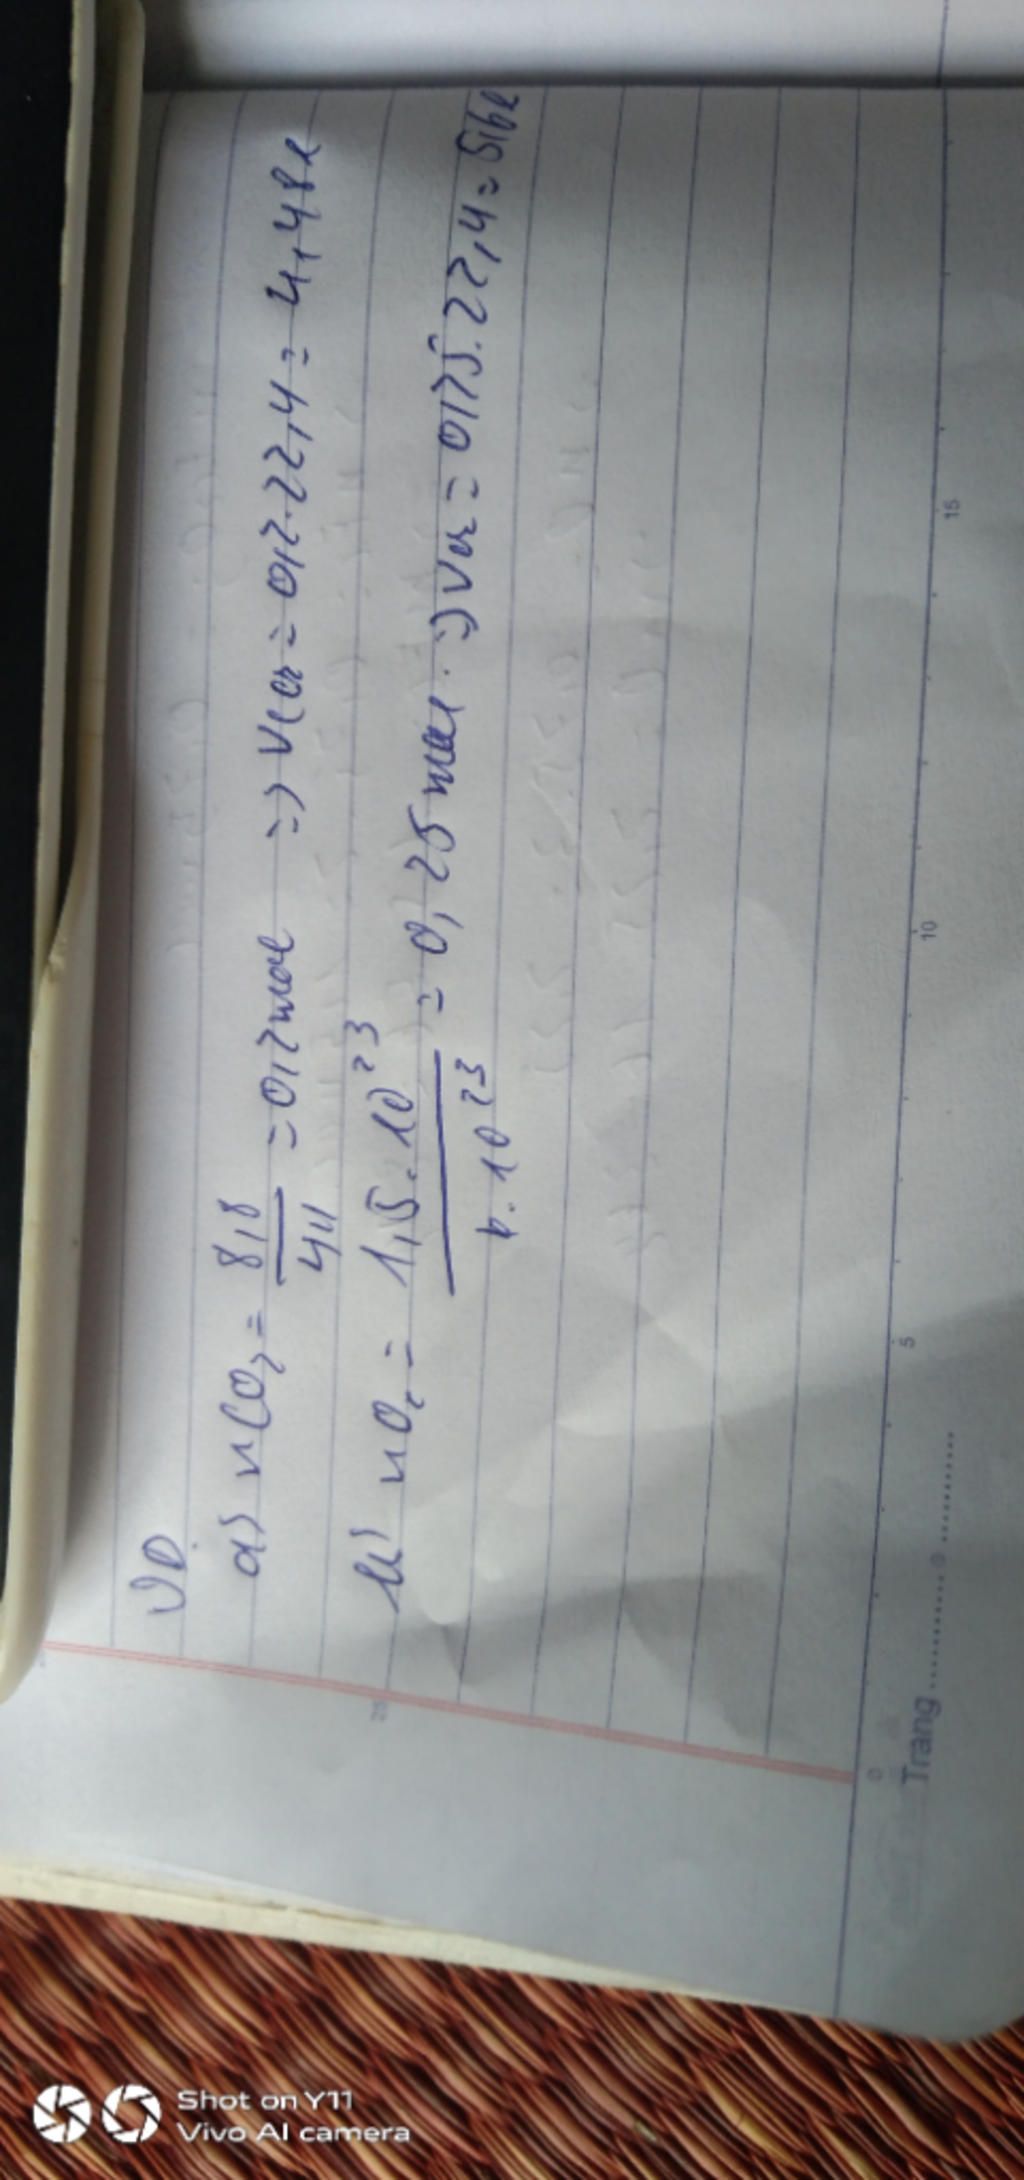 VD
a) nCO₂ = 8,8/44 = 0,2 mol => VCO₂ = 0,2.22,4 = 4,48l
b) nO₂ = 1,5.10²³/6.10²³ = 0,25 mol. => VO₂ = 0,25.22,4 = 5,6l
25
0 5 10 15
Trang
Shot on Y11
Vivo AI camera